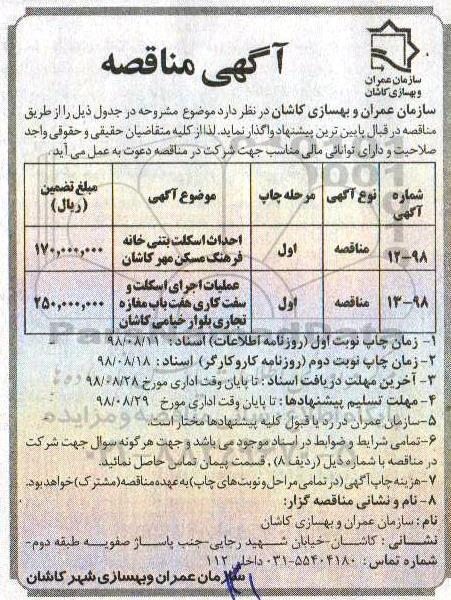 سازمان عمران
و بهسازی کاشان
آگهی مناقصه
سازمان عمران و بهسازی کاشان در نظر دارد موضوع مشروحه در جدول ذیل را از طریق
مناقصه در قبال پایین ترین پیشنهاد واگذار نماید. لذا از کلیه متقاضیان حقیقی و حقوقی واجد
صلاحیت و دارای توانائی مالی مناسب جهت شرکت در مناقصه دعوت به عمل می آید.
شماره آگهی | نوع آگهی | مرحله چاپ | موضوع آگهی | مبلغ تضمین (ریال)
۱۲-۹۸ | مناقصه | اول | احداث اسکلت بتنی خانه فرهنگ مسکن مهر کاشان | ۱۷۰,۰۰۰,۰۰۰
۱۳-۹۸ | مناقصه | اول | عملیات اجرای اسکلت و سفت کاری هفت باب مغازه تجاری بلوار خیامی کاشان | ۲۵۰,۰۰۰,۰۰۰
۱- زمان چاپ نوبت اول (روزنامه اطلاعات) اسناد : ۹۸/۰۸/۱۱
۲- زمان چاپ نوبت دوم (روزنامه کاروکارگر) اسناد : ۹۸/۰۸/۱۸
۳- آخرین مهلت دریافت اسناد : تا پایان وقت اداری مورخ ۹۸/۰۸/۲۸
۴- مهلت تسلیم پیشنهادها : تا پایان وقت اداری مورخ ۹۸/۰۸/۲۹
۵-سازمان عمران در رد یا قبول کلیه پیشنهادها مختار است.
۶-تمامی شرایط و ضوابط در اسناد موجود می باشد و جهت هر گونه سوال جهت شرکت
در مناقصه با شماره ذیل (ردیف ۸) , قسمت پیمان تماس حاصل نمائید.
۷-هزینه چاپ آگهی (در تمامی مراحل و نوبت های چاپ) به عهده مناقصه (مشترک) خواهد بود.
۸- نام و نشانی مناقصه گزار:
نام : سازمان عمران و بهسازی کاشان
نشانی : کاشان-خیابان شهید رجایی-جنب پاساژ صفویه طبقه دوم-
شماره تماس : ۵۵۴۰۴۱۸۰-۰۳۱ داخلی ۱۱۲
سازمان عمران وبهسازی شهر کاشان